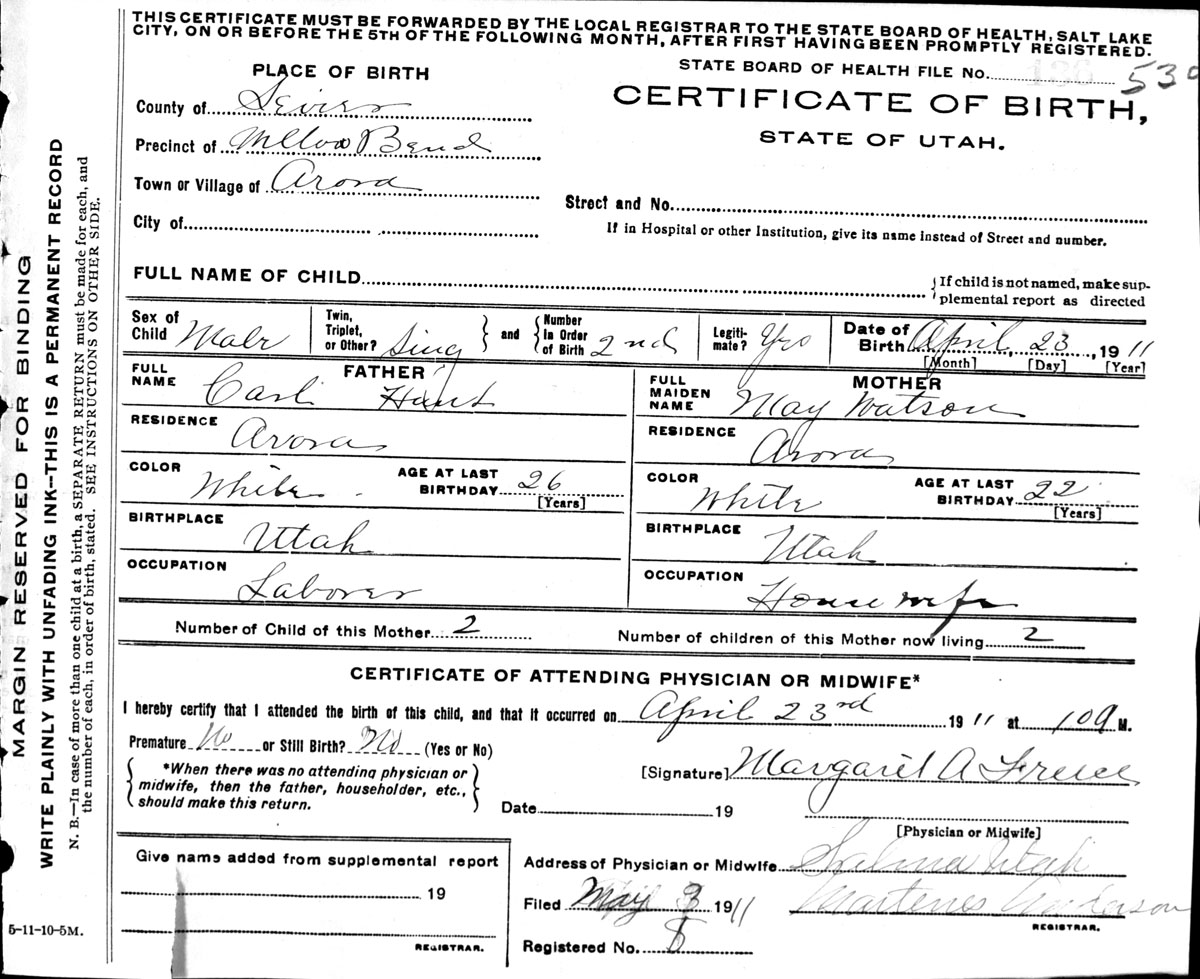 THIS CERTIFICATE MUST BE FORWARDED BY THE LOCAL REGISTRAR TO THE STATE BOARD OF HEALTH, SALT LAKE
CITY, ON OR BEFORE THE 5TH OF THE FOLLOWING MONTH, AFTER FIRST HAVING BEEN PROMPTLY REGISTERED.
PLACE OF BIRTH
STATE BOARD OF HEALTH FILE No. 136 530
County of Sevier
CERTIFICATE OF BIRTH,
STATE OF UTAH.
Precinct of Bend
Town or Village of Arora
Street and No.
City of
If in Hospital or other Institution, give its name instead of Street and number.
FULL NAME OF CHILD
If child is not named, make sup-
plemental report as directed
Sex of Child Male
Twin, Triplet, or Other? Sing
and
Number In Order of Birth 2nd
Legiti- mate? Yes
Date of Birth April 23, 1911
[Month] [Day] [Year]
FATHER
FULL NAME Carl Hunt
RESIDENCE Arora
COLOR White
AGE AT LAST BIRTHDAY 26
[Years]
BIRTHPLACE Utah
OCCUPATION Laborer
MOTHER
FULL MAIDEN NAME May Watson
RESIDENCE Arora
COLOR White
AGE AT LAST BIRTHDAY 22
[Years]
BIRTHPLACE Utah
OCCUPATION Housewife
Number of Child of this Mother 2
Number of children of this Mother now living 2
CERTIFICATE OF ATTENDING PHYSICIAN OR MIDWIFE*
I hereby certify that I attended the birth of this child, and that it occurred on April 23rd 1911 at M.
Premature No or Still Birth? No (Yes or No)
*When there was no attending physician or
midwife, then the father, householder, etc.,
should make this return.
[Signature] Margaret A
Date 19
[Physician or Midwife]
Give name added from supplemental report
19
REGISTRAR.
Address of Physician or Midwife Salina Utah
Filed May 3 1911
Anderson
REGISTRAR.
Registered No. 8
5-11-10-5M.
MARGIN RESERVED FOR BINDING
WRITE PLAINLY WITH UNFADING INK—THIS IS A PERMANENT RECORD
N. B.—In case of more than one child at a birth, a SEPARATE RETURN must be made for each, and
the number of each, in order of birth, stated. SEE INSTRUCTIONS ON OTHER SIDE.